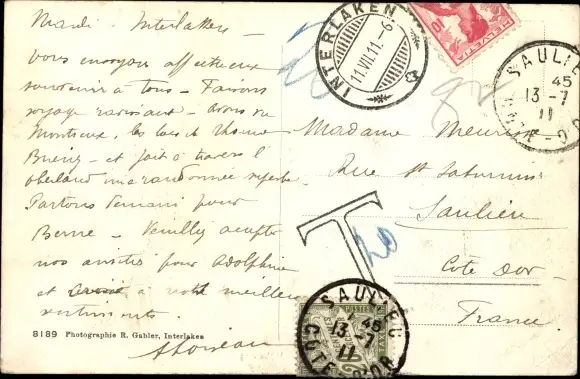 Mardi - Interlaken -
vous envoyons affectueux
souvenir à tous - Faisons
voyage ravissant - avons vu
Montreux, les lacs de Thoune
Brienz - et fait à travers l'
oberland une randonnée superbe
Partons demain pour
Berne - Veuillez accepter
nos amitiés pour Adolphine
et à meilleurs
sentiments.
8189 Photographie R. Gabler, Interlaken
INTERLAKEN
11.VII.11.-6
HELVETIA
10
SAULIEU
45
13-7
11
CÔTE-D'OR
Madame
Rue St Saturnin
Saulieu
Cote d'or -
France.
T
20
POSTES
SAULIEU
45
13-7
11
CÔTE-D'OR